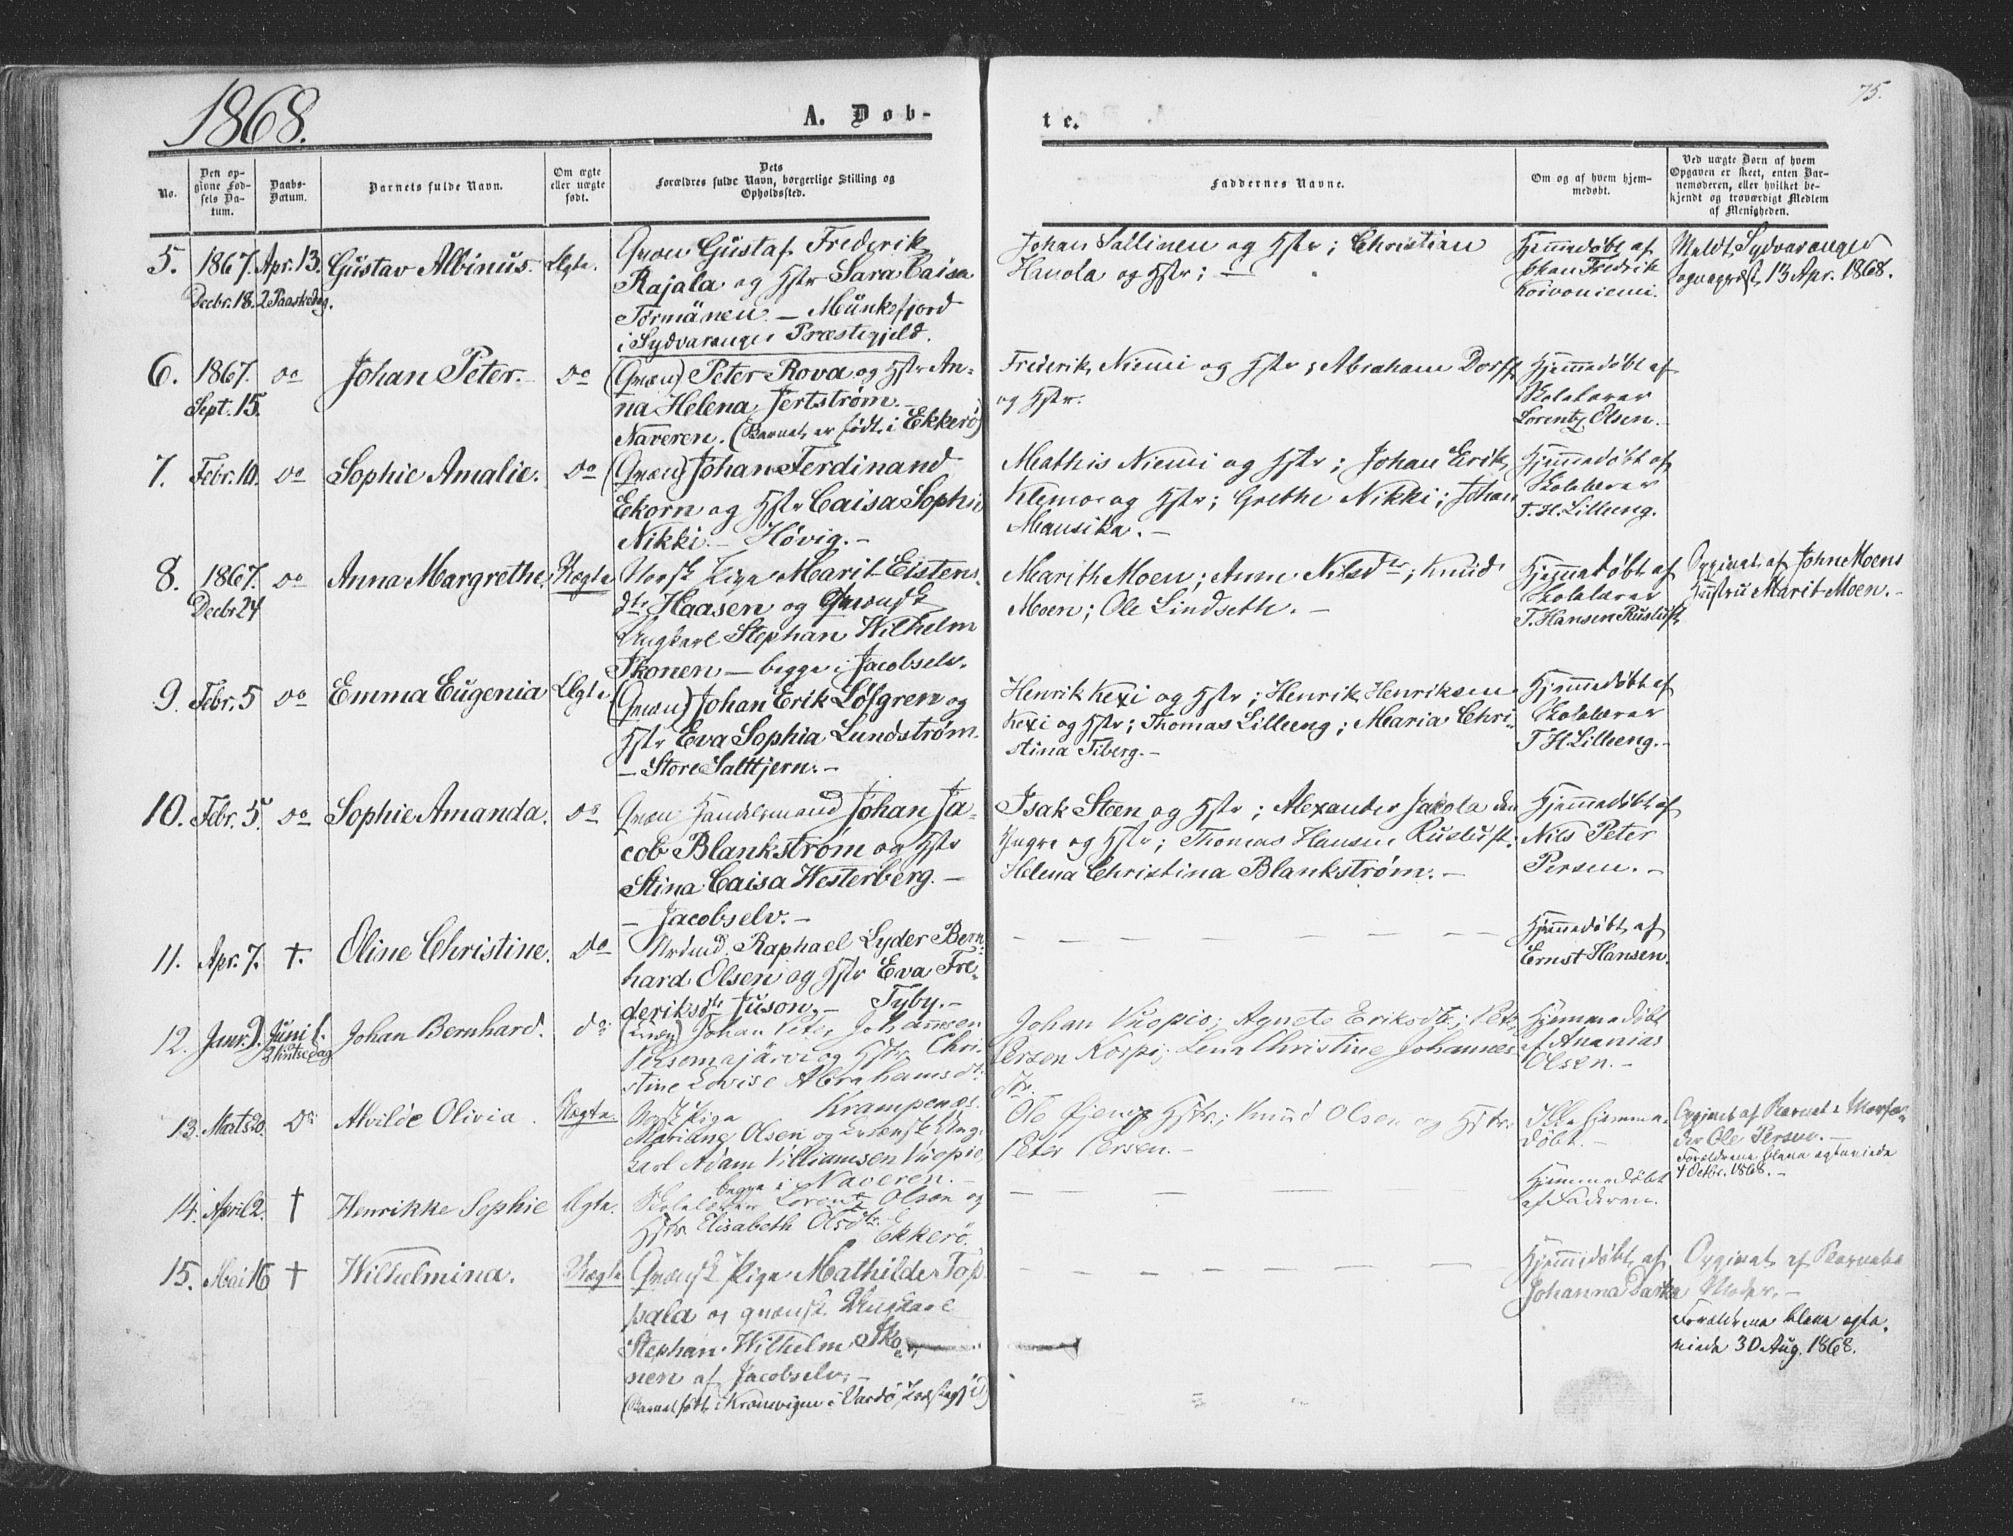 1868.
A. Døb-
te.
75.
No.
Den op-
givne Fød-
sels Da-
tum.
Daabs-
Datum.
Barnets fulde Navn.
Om ægte
eller uægte
født.
Dets
Forældres fulde Navn, borgerlige Stilling og
Opholdssted.
Faddernes Navne.
Om og af hvem hjem-
medøbt.
Ved uægte Børn af hvem
Opgaven er skeet, enten Bar-
nemoderen, eller hvilket be-
kjendt og troværdigt Medlem
af Menigheden.
5.
1867.
Decbr. 18.
Apr. 13.
2 Paaskedag.
Gustav Albinus.
Ægte.
Qvæn Gustaf Frederik
Rajala og Hstr Sara Caisa
Tormänen. — Munkefjord
i Sydvaranger Præstegjeld.
Johan Sallinen og Hstr; Christian
Hauola og Hstr; —
Hjemmedøbt af
Johan Fredrik
Koivoniemi.
Meldt Sydvaranger
Sognepræst 13 Apr. 1868.
6.
1867.
Sept. 15.
do
Johan Peter.
do
(Qvæn) Peter Rova og Hstr An-
na Helena Jertstrøm. —
Naveren. (Barnet er født i Ekkerø)
Frederik Niemi og Hstr; Abraham Dorff
og Hstr.
Hjemmedøbt af
Skolelærer
Lorentz Olsen. —
7.
Febr. 10.
do
Sophie Amalie.
do
(Qvæn) Johan Ferdinand
Ekorn og Hstr Caisa Sophie
Nikki. — Høvig. —
Mathis Niemi og Hstr; Johan Erik
Klemoe og Hstr; Grethe Nikki; Johan
Mansika. —
Hjemmedøbt af
Skolelærer
T. H. Lilleeng.
8.
1867.
Decbr 24
do
Anna Margrethe.
Uægte
Norsk Pige Marit Eistens-
dtr Haasen og Qvænsk
Ungkarl Stephan Wilhelm
Skonen — begge i Jacobselv.
Marith Moen; Anne Nilsdtr; Knud
Moen; Ole Lindseth. —
Hjemmedøbt af
Skolelærer
T. Hansen Rustuft
Opgivet af John Moens
Hustru Marit Moen. —
9.
Febr. 5
do
Emma Eugenia
Ægte
(Qvæn) Johan Erik Löfgren og
Hstr Eva Sophia Lundstrøm.
— Store Salttjern. —
Henrik Kexi og Hstr; Henrik Henriksen
Kexi og Hstr; Thomas Lilleeng; Maria Chri-
stina Fiberg. —
Hjemmedøbt af
Skolelærer
T H Lilleeng. —
10.
Febr. 5.
do
Sophie Amanda.
do
Qvæn Handelsmand Johan Ja-
cob Blankstrøm og Hstr
Stina Caisa Westerberg. —
— Jacobselv. —
Isak Steen og Hstr; Alexander Jakola den
Yngre og Hstr; Thomas Hansen Rustuft;
Helena Christina Blankstrøm. —
Hjemmedøbt af
Nils Peter
Persen. —
11.
Apr. 7.
†.
Oline Christine.
do
Raphael Lyder Bern-
hard Olsen og Hstr Eva Fre-
deriksdtr Juson. — Tyby. —
— — — — — — — —
Hjemmedøbt af
Ernst Hansen.
12.
Janr. 9.
Juni 1.
2 Pintsedag
Johan Bernhard.
do
(Kvæn) Johan Peter Johannsen
Persomajärvi og Hstr Chri-
stine Lovise Abrahamsdtr
Krampenæs.
Johan Vuopio; Agnete Eriksdtr; Peter
Persen Korpi; Lena Christine Johannes-
dtr.
Hjemmedøbt
af Ananias
Olsen. —
13.
Marts 20
do
Alvilde Olivia.
Uægte.
Norsk Pige
Mariane Olsen og kvænsk Ung-
karl Adam Williamsen Vuopio,
begge i Naveren. —
Ole Øjen og Hstr.; Knud Olsen og Hstr.
Peter Persen. —
Ikke hjemme-
døbt. —
Opgivet af Barnets Morfa-
der Ole Persen. —
Forældrene bleve egteviede
4 Octbr. 1868. —
14.
April 2.
†
Henrikke Sophie
Ægte.
Skolelærer Lorentz Olsen og
Hstr. Elisabeth Olsdtr.
Ekkerø.
— — — — — — — —
Hjemmedøbt
af Faderen.
15.
Mai 16
†
Wilhelmina.
Uægte
Qvænsk Pige Mathilde Top-
pala og qvænsk Ungkarl
Stephan Wilhelm Sko-
nen af Jacobselv. —
(Barnet født i Kramvigen i Vardø Præstegj.)
— — — — — — — —
Hjemmedøbt af
Johanna Parka
Opgivet af Barnets
Moder. —
Forældrene bleve egte-
viede 30 Aug. 1868.